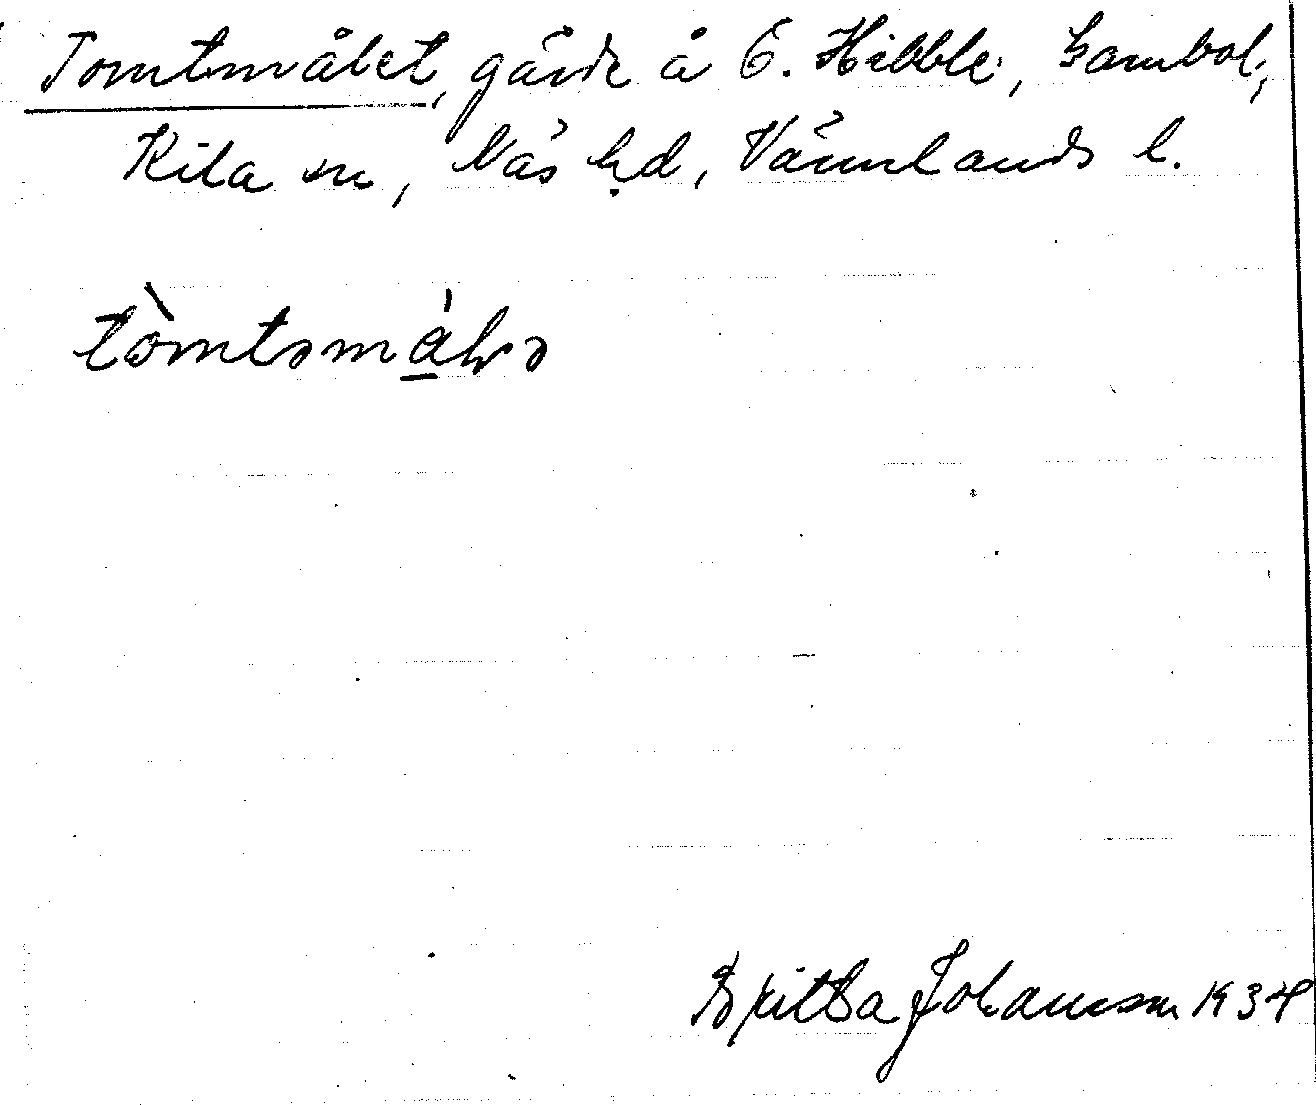 Tomtmålet, gärde å Ö. Hibble, Gambol,
Kila sn, Näs hd, Värmlands l.
tòmtəmá̱lvə
Britta Johansson 1934